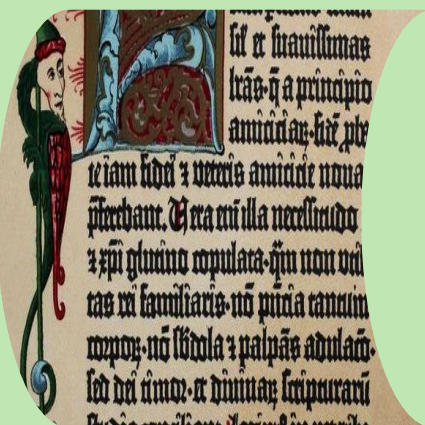 sil et suauissimas
lr̃as · q̃ a principio
amiciciar̃ · fidẽ ꝓba
te iam fidei ⁊ veteris amicicie noua
p̃ferebant. Uera em̃ illa necessitudo
⁊ xp̃i glutino copulata · q̃m non vtil
tas rei familiaris · nõ p̃ncia tantum
corpoꝝ · nõ sb̃dola ⁊ palpãs adulacõ ·
sed dei timor · et diuinaꝝ scripturarũ